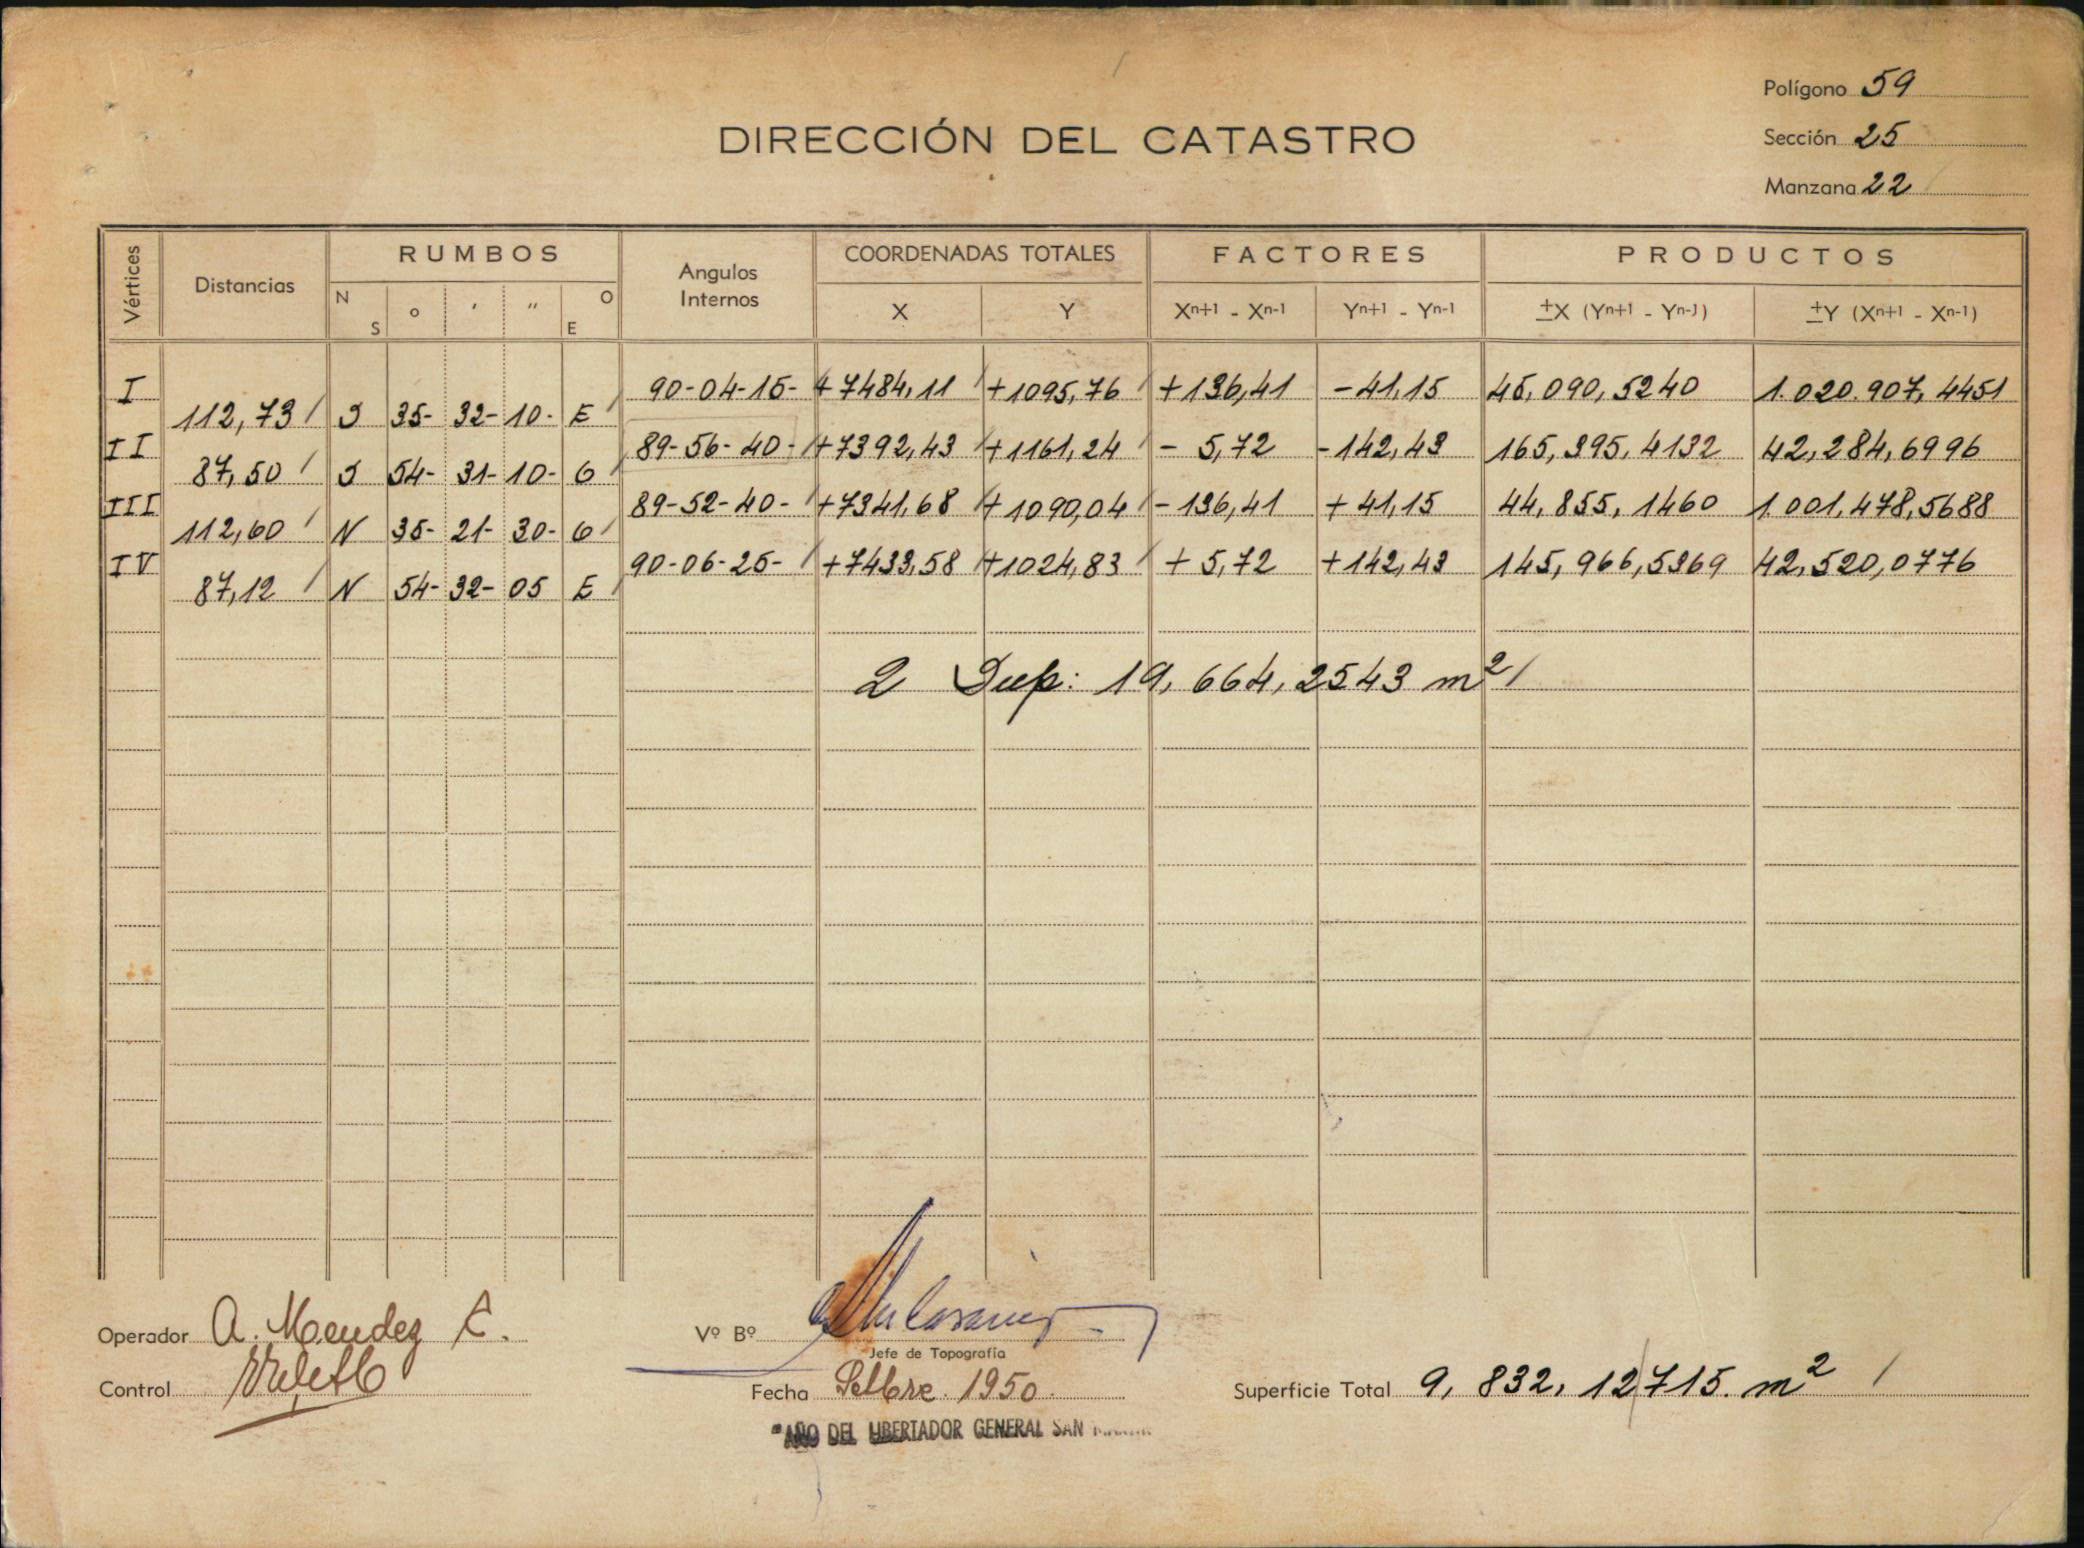 Polígono 59
DIRECCIÓN DEL CATASTRO
Sección 25
Manzana 22
Vértices Distancias RUMBOS Angulos Internos COORDENADAS TOTALES FACTORES PRODUCTOS
N S o ' " O E X Y Xn+1 - Xn-1 Yn+1 - Yn-1 ±X (Yn+1 - Yn-1) ±Y (Xn+1 - Xn-1)
I 90-04-15- +7484,11 +1095,76 +136,41 -41,15 45,090,5240 1.020.907,4451
112,73 S 35- 32- 10- E
II 89-56-40- +7392,43 +1161,24 - 5,72 -142,43 165,395,4132 42,284,6996
87,50 S 54- 31- 10- O
III 89-52-40- +7341,68 +1090,04 -136,41 +41,15 44,855,1460 1.001,478,5688
112,60 N 35- 21- 30- O
IV 90-06-25- +7433,58 +1024,83 +5,72 +142,43 145,966,5369 42,520,0776
87,12 N 54- 32- 05 E
2 Sup: 19,664,2543 m²
Operador A. Mendez C.
Vº Bº
Jefe de Topografía
Control
Fecha Setbre. 1950.
Superficie Total 9,832,12715. m²
"AÑO DEL LIBERTADOR GENERAL SAN